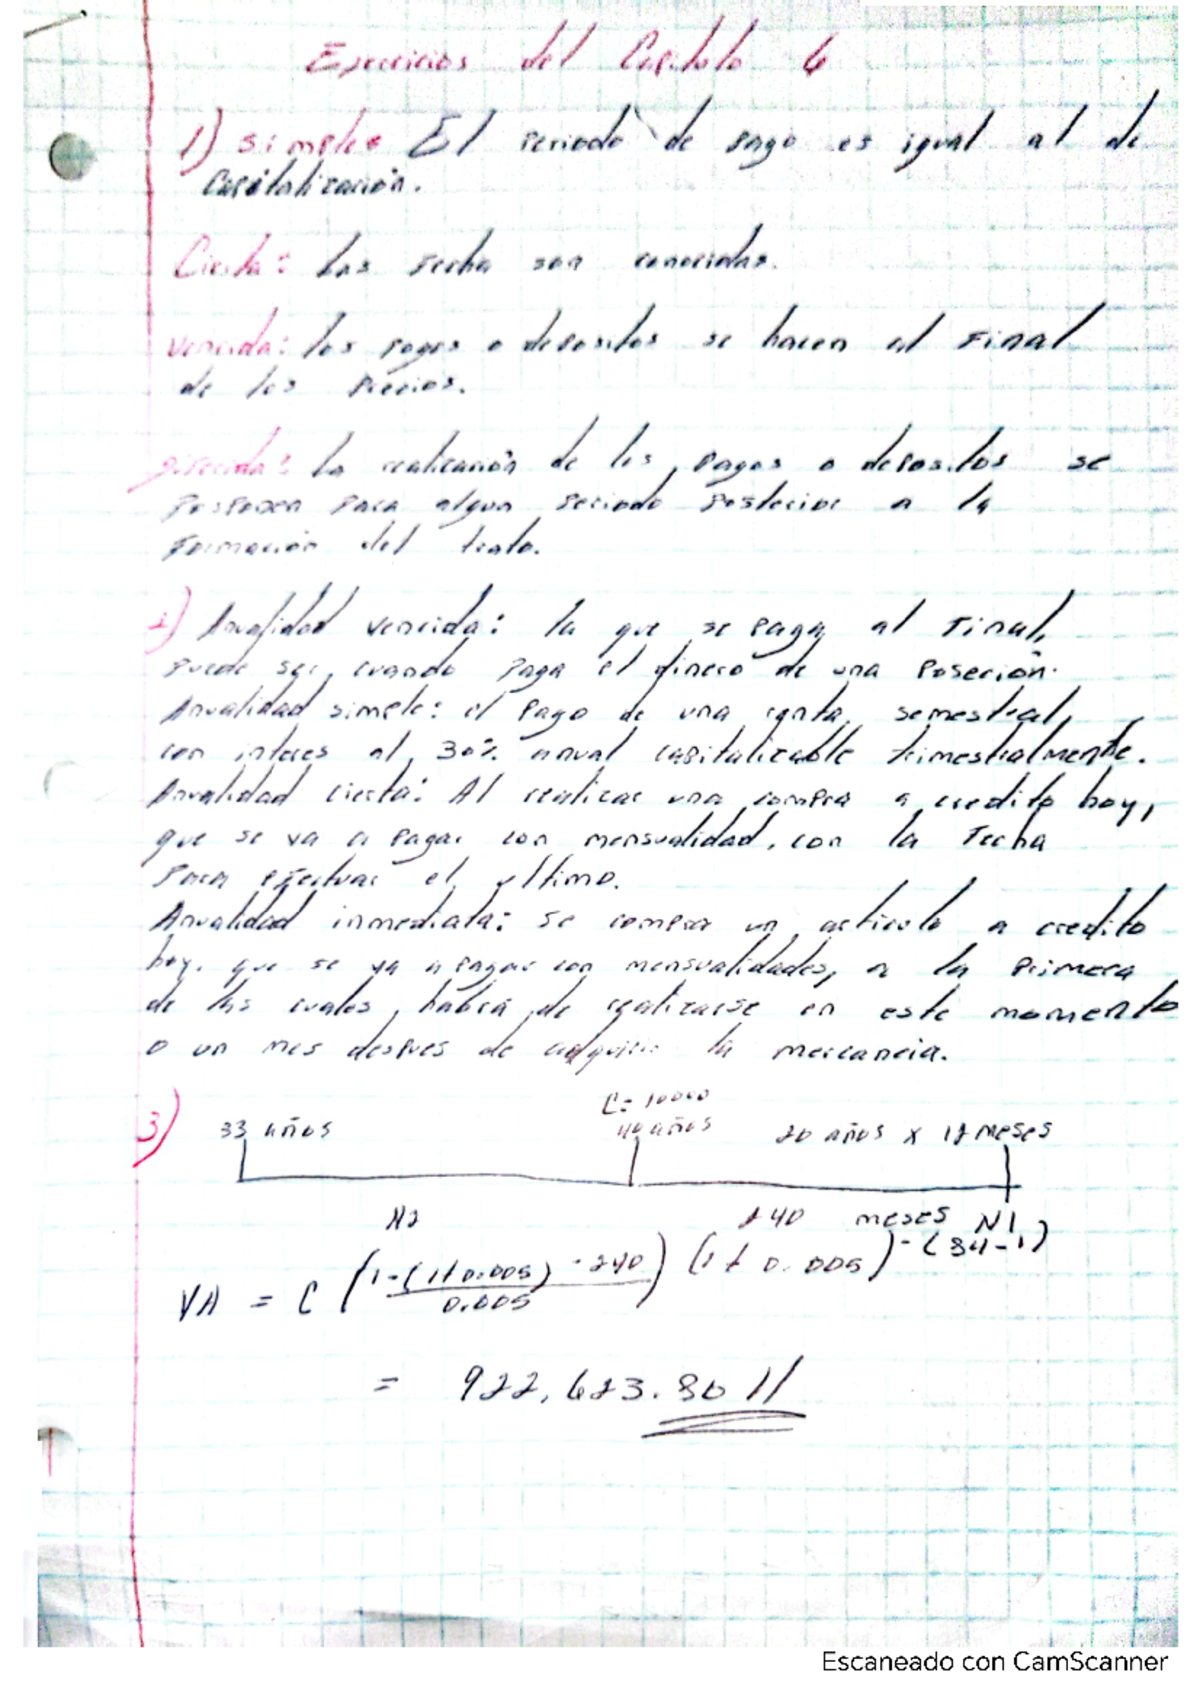 Ejercicios del Capitulo 6
1) simple: El periodo de pago es igual al de
Capitalización.
Cierta: Las fecha son conocidas.
Vencida: los pagos o depositos se hacen al Final
de los
Diferida: la realización de los pagos o depositos se
Posponen Para algun Periodo Posterior a la
Formación del trato.
2) Anualidad vencida: la que se paga al Final,
Puede ser, cuando Paga el dinero de una Poseción.
Anualidad simple: el Pago de una renta semestral,
con interes al 30% anual capitalizable trimestralmente.
Anualidad cierta: Al realizar una compra a credito hoy,
que se va a Pagar con mensualidad, con la Fecha
Para efectuar el ultimo.
Anualidad inmediata: se compra un articulo a credito
hoy, que se va a Pagar con mensualidades, a la Primera
de las cuales, habrá de realizarse en este momento
o un mes despues de adquirir la mercancia.
3) 33 años
C= 10000
40 años
20 años x 12 meses
N2
240 meses N1
VA = C (1-(1+0.005)-240 / 0.005) (1+0.005)-(84-1)
= 922,623.80 //
Escaneado con CamScanner